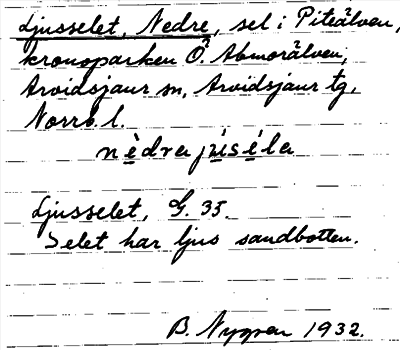 Ljusselet, Nedre, sel i Piteälven,
kronoparken Ö. Abmorälven,
Arvidsjaur sn, Arvidsjaur tg,
Norrb. l.
nèdra jùséla
Ljusselet, G. 33.
Selet har ljus sandbotten.
B. Nygren 1932.